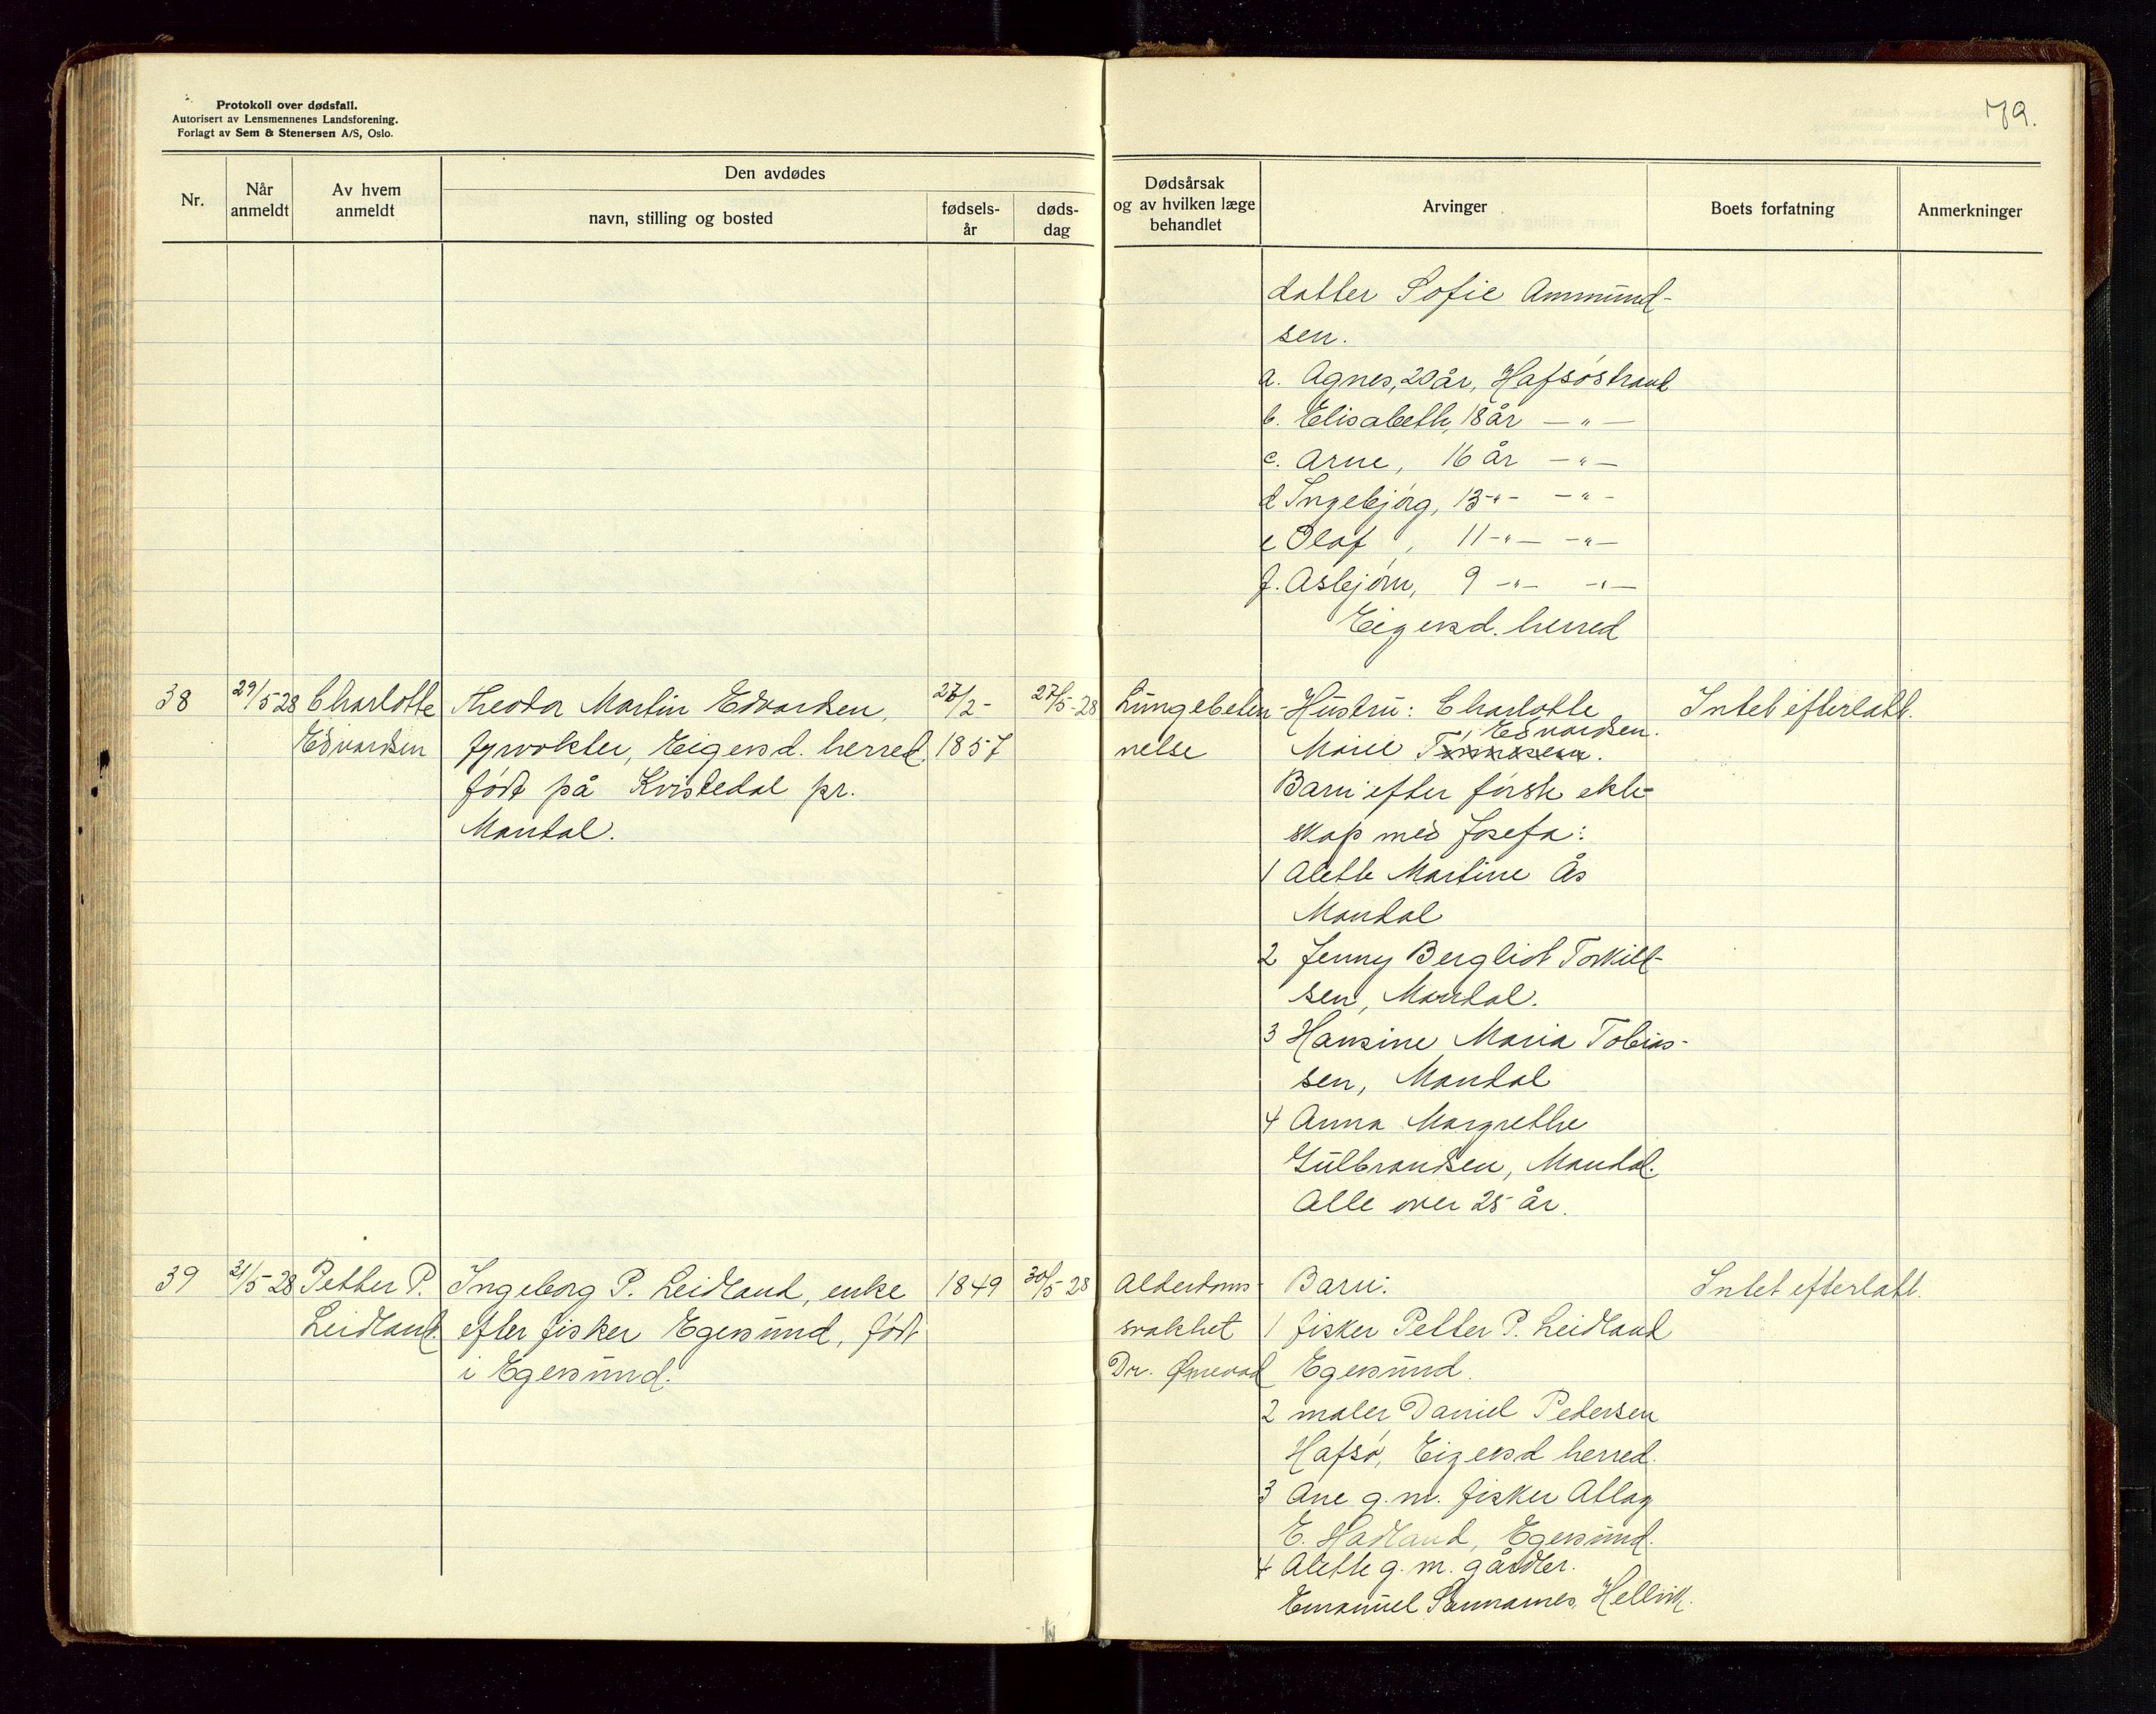 Protokoll over dødsfall.
Autorisert av Lensmennenes Landsforening.
Forlagt av Sem & Stenersen A/S, Oslo.
79.
Nr.
Når anmeldt
Av hvem anmeldt
Den avdødes
navn, stilling og bosted
fødsels-år
døds-dag
Dødsårsak og av hvilken læge behandlet
Arvinger
Boets forfatning
Anmerkninger
datter Sofie Ammund-
sen.
a. Agnes, 20 år, Hafsøstrand
b. Elisabeth, 18 år — " —
c. Arne, 16 år — " —
d Ingebjørg, 13 - " - — " —
e Olaf , 11 - " — - " —
f. Asbjørn, 9 — " — — " —
Eigersd. herred
38 29/5 28 Charlotte Theodor Martin Edvardsen, 26/2- 27/5-28 Lungebeten- Hustru: Charlotte Intet efterlatt.
Edvardsen fyrvokter, Eigersd. herred. 1857 nelse Marie Edvardsen.
født på Kvistedal pr. Barn efter første ekte-
Mandal. skap med Josefa:
1 Alette Martine Ås
Mandal
2 Jenny Bergliot Torkild-
sen, Mandal.
3 Hansine Maria Tobias-
sen, Mandal
4 Anna Margrethe
Gulbrandsen, Mandal.
Alle over 25 år.
39 31/5-28 Petter P. Ingeborg P. Leidland, enke 1849 30/5-28 Alderdoms- Barn: Intet efterlatt.
Leidland. efter fisker Egersund, født svakhet 1 fisker Petter P. Leidland
i Egersund. Dr. Ørnevad Egersund.
2 maler Daniel Pedersen
Hafsø, Eigersd herred.
3 Ane g.m. fisker Atlag
E. Hadland, Egersund.
4 Alette g.m. gårdbr.
Emanuel Sannarnes, Hellvik.